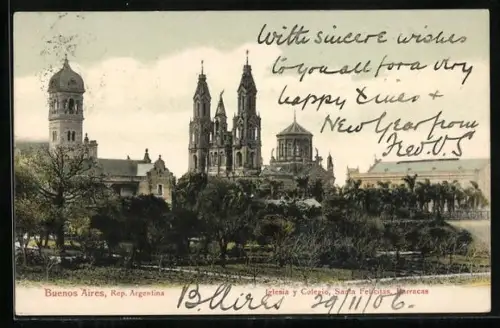 With sincere wishes
to you all for a very
happy Xmas +
New Year from
Fred V. S.
Buenos Aires, Rep. Argentina
Iglesia y Colegio, Santa Felicitas, Barracas
B. Aires 29/11/06.